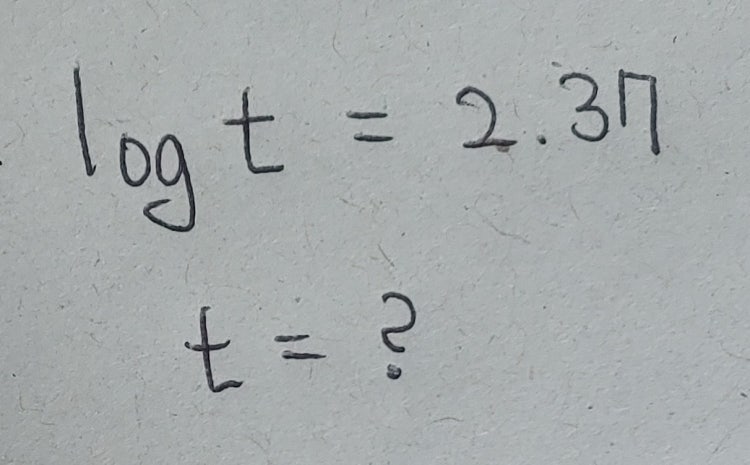 log t = 2.37
t = ?